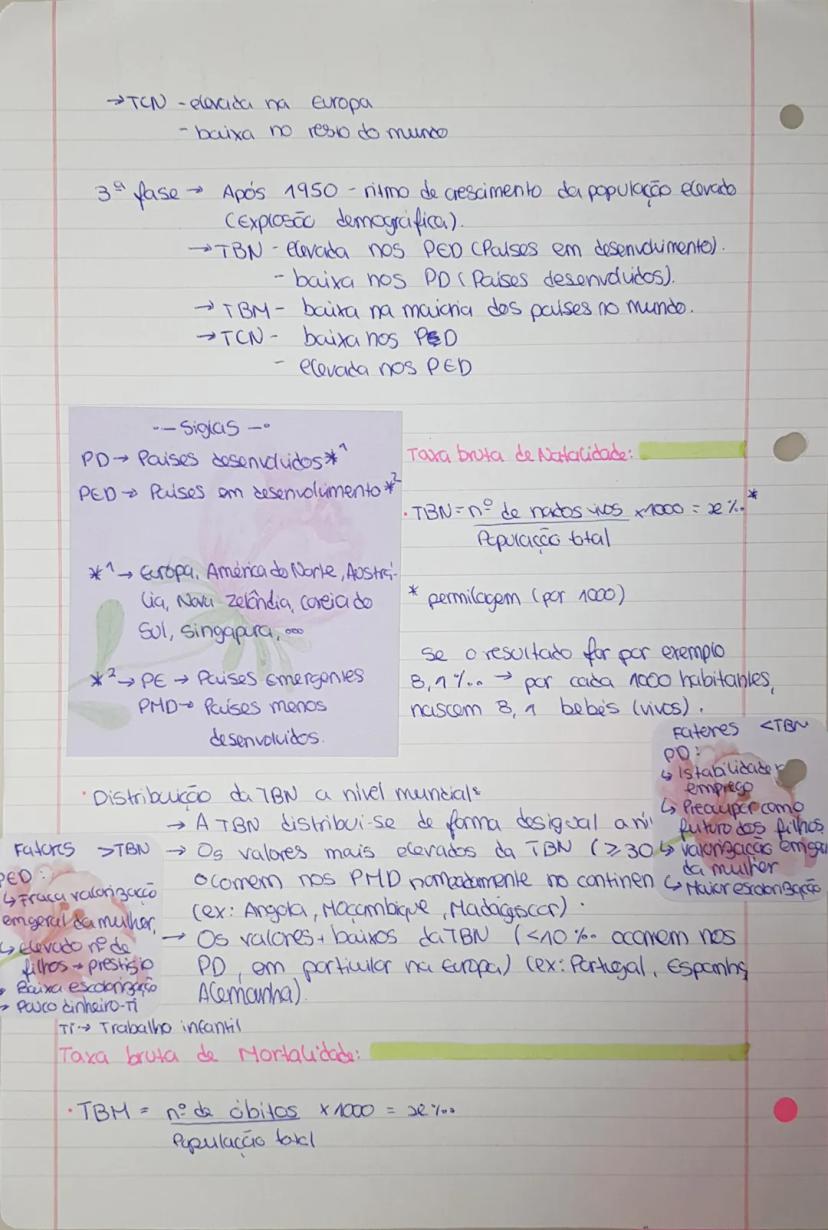 →TCN - elevada na Europa
- baixa no resto do mundo
3ª fase → Após 1950 - ritmo de crescimento da população elevado
(Explosão demográfica).
→TBN - elevada nos PED (Países em desenvolvimento).
- baixa nos PD (Países desenvolvidos).
→ TBM - baixa na maioria dos países no mundo.
→ TCN - baixa nos PED
- elevada nos PED
-- Siglas --
PD → Países desenvolvidos *¹
PED → Países em desenvolvimento *²
*¹ → Europa, América do Norte, Austrá-
lia, Nova Zelândia, Coreia do
Sul, Singapura, ...
*² → PE → Países Emergentes
PMD → Países menos
desenvolvidos.
Taxa bruta de Natalidade:
· TBN = nº de nados vivos x1000 = x‰ *
População total
* permilagem (por 1000)
Se o resultado for por exemplo
8,1‰ → por cada 1000 habitantes,
nascem 8,1 bebés (vivos).
Fatores <TBN
PD:
↳ Istabilidade
emprego
↳ Preocupar com o
futuro dos filhos
↳ valorização
da mulher
↳ Maior escolarização
· Distribuição da TBN a nível mundial:
→ A TBN distribui-se de forma desigual a ní
→ Os valores mais elevados da TBN (≥30
ocorrem nos PMD nomeadamente no continen
(ex: Angola, Moçambique, Madagáscar).
→ Os valores + baixos da TBN (<10‰ ocorrem nos
PD, em particular na Europa) (ex: Portugal, Espanha,
Alemanha).
Fatores >TBN
PED:
↳ Fraca valorização
em geral da mulher,
↳ Elevado nº de
filhos → prestígio
Baixa escolarização
Pouco dinheiro-TI
TI → Trabalho infantil
Taxa bruta de Mortalidade:
· TBM = nº de óbitos x1000 = x‰
População total